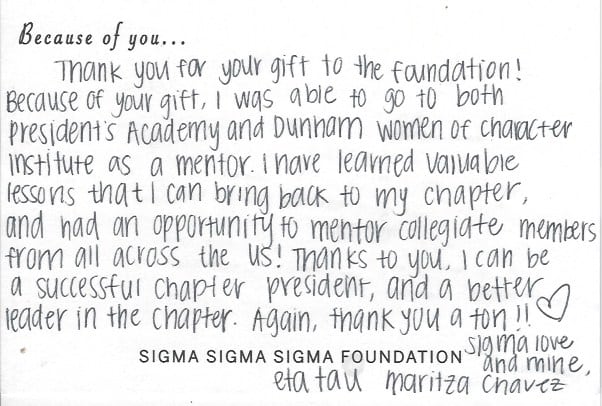 Because of you...
Thank you for your gift to the foundation!
Because of your gift, I was able to go to both
President's Academy and Dunham Women of Character
Institute as a mentor. I have learned valuable
lessons that I can bring back to my chapter,
and had an opportunity to mentor collegiate members
from all across the US! Thanks to you, I can be
a successful chapter president, and a better
leader in the chapter. Again, thank you a ton!! ♡
Sigma love
SIGMA SIGMA SIGMA FOUNDATION
and mine,
eta tau Maritza Chavez